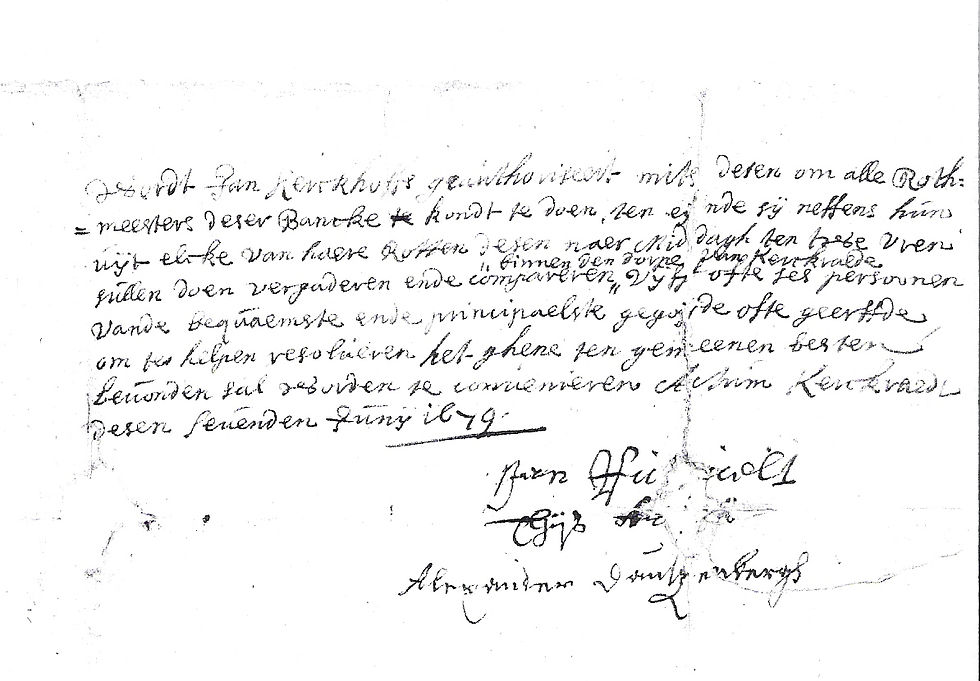 Wordt Jan Kerckhoffs geauthoriseert mits desen om alle Roth=
= meesters deser Bancke te kondt te doen, ten eynde sij neffens hun
uijt elcke van haere Rotten desen naer Middagh ten twee Vren
binnen den dorpe van Kerckraede
sullen doen vergaderen ende compareren vijff ofte ses persoonen
vande bequaemste ende principaelste gegoyde ofte geerffde
om te helpen resolueren het ghene ten gemeenen besten
beuonden sal worden te convenieren Actum Kerckraede
desen seuenden Junij 1679.
Jan
Thijs
Alexander Dautzenbergh